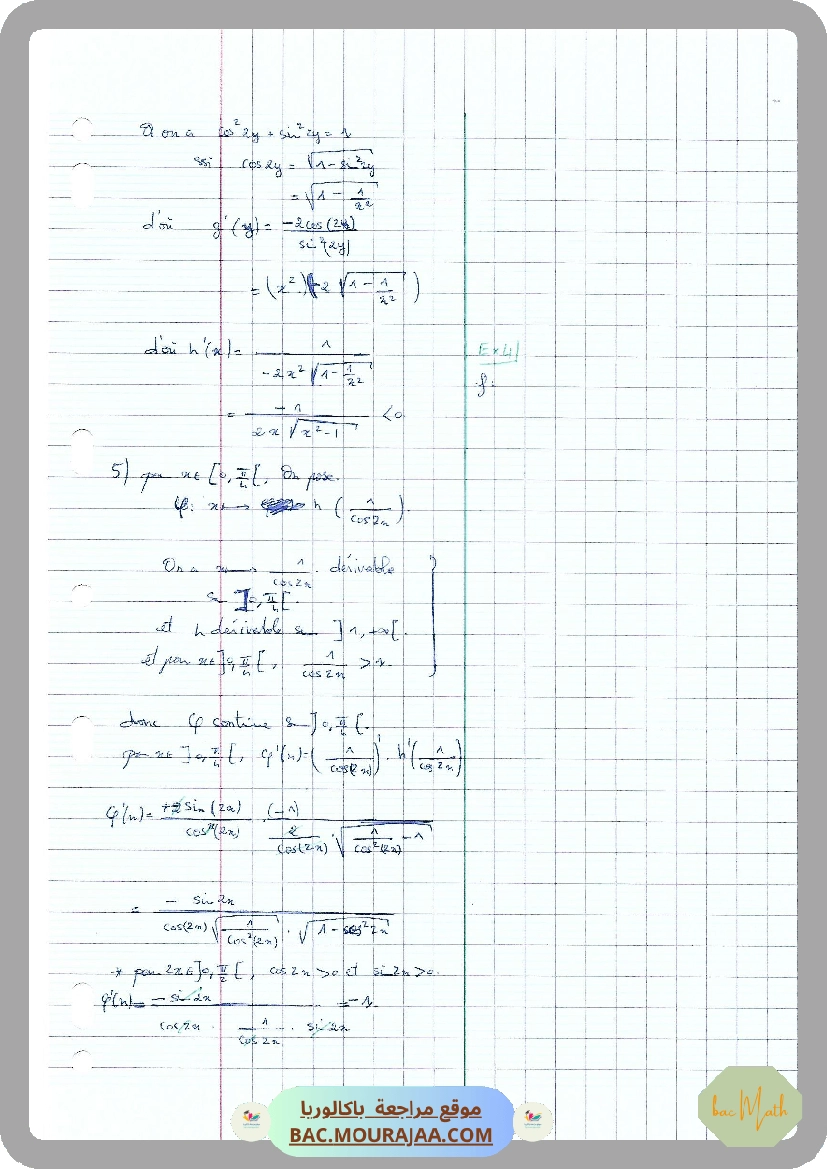 Or on a cos²2y + sin²2y = 1
ssi cos 2y = √(1 - sin²2y)
= √(1 - 1/x²)
d'où g'(y) = -2cos(2y) / sin²(2y)
= (x²)(-2 √(1 - 1/x²))
d'où h'(x) = 1 / (-2x² √(1 - 1/x²))
= -1 / (2x √(x²-1)) < 0
Ex 4|
f:
5) pour x ∈ [0, π/4[, On pose.
φ: x ↦ h (1/cos2x).
On a x ↦ 1/cos2x dérivable
sur ]0, π/4[.
et h dérivable sur ]1, +∞[.
et pour x ∈ ]0, π/4[, 1/cos2x > 1.
donc φ continue sur ]0, π/4[.
pour x ∈ ]0, π/4[, φ'(x) = (1/cos(2x))' · h'(1/cos2x)
φ'(x) = +2sin(2x) / cos²(2x) · (-1) / (2/cos(2x) · √(1/cos²(2x) - 1))
= - sin 2x / (cos(2x) √(1/cos²(2x)) · √(1 - cos²2x))
* pour 2x ∈ ]0, π/2[, cos2x > 0 et sin2x > 0.
φ'(x) = - sin 2x / (cos2x · 1/cos2x · sin 2x) = -1.
موقع مراجعة باكالوريا
BAC.MOURAJAA.COM
bac Math